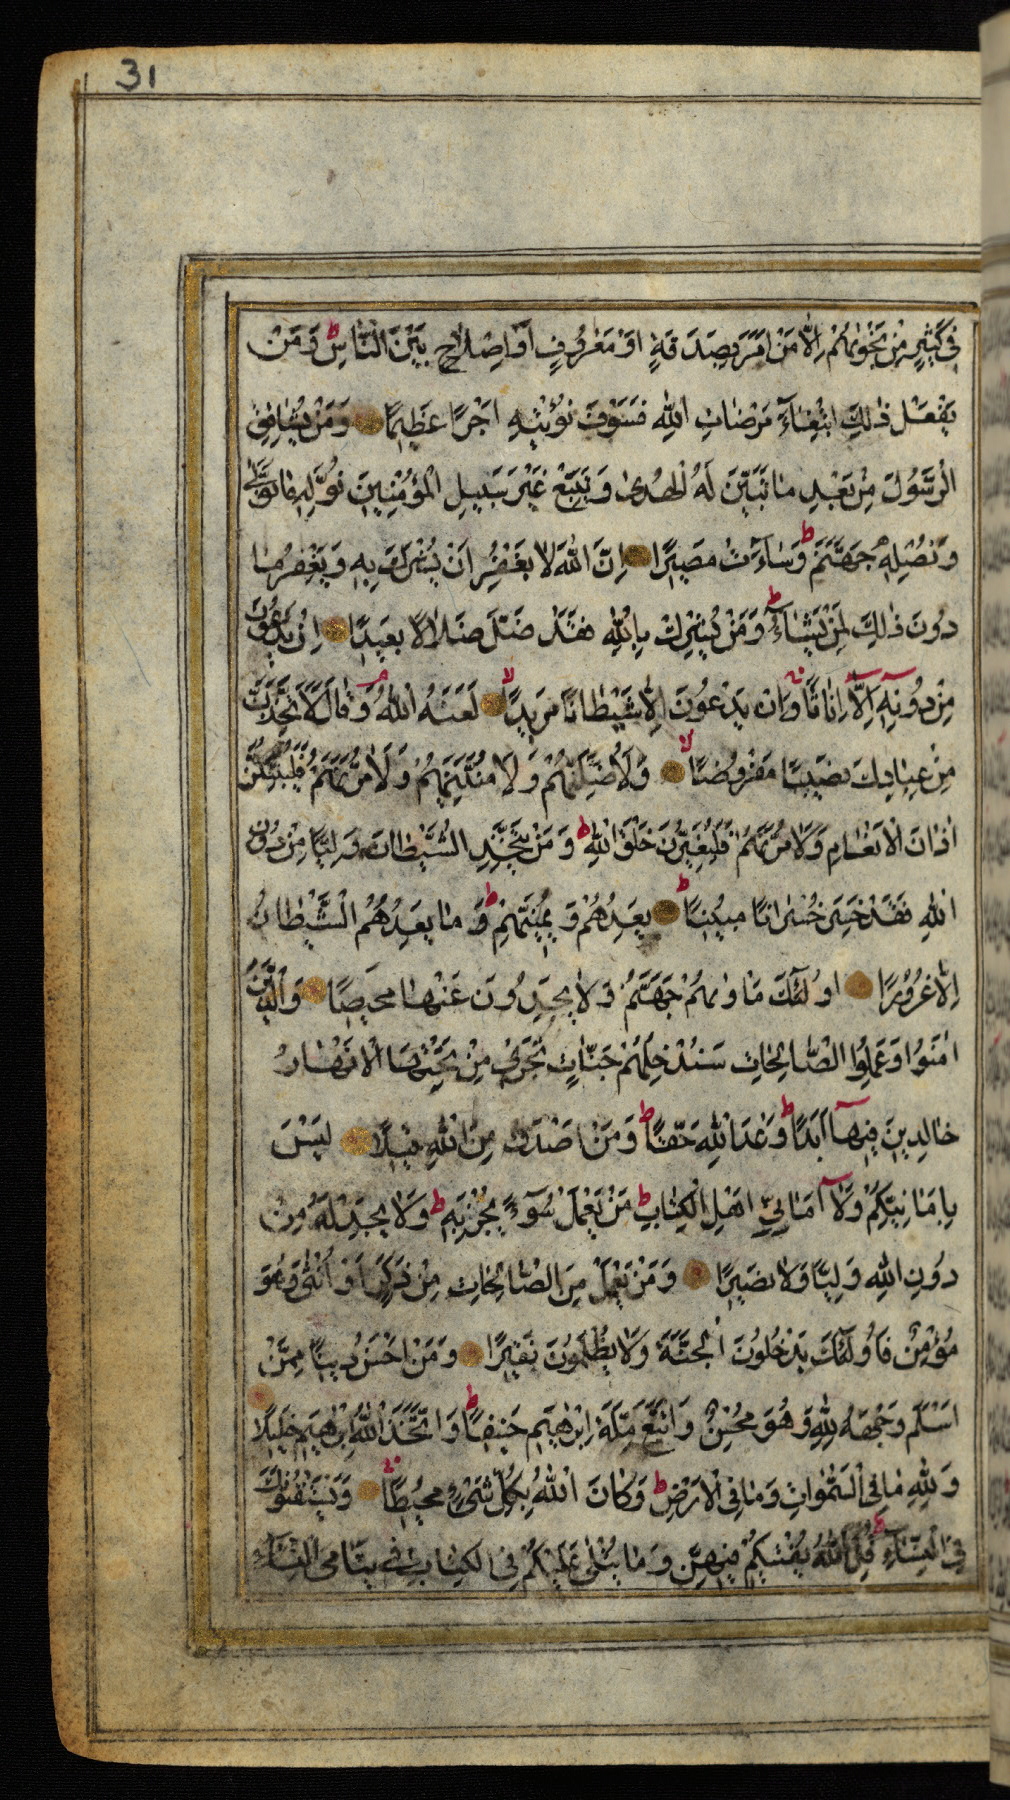 31
فِي كَثِيرٍ مِنْ نَجْوٰيهُمْ اِلَّا مَنْ اَمَرَ بِصَدَقَةٍ اَوْ مَعْرُوفٍ اَوْ اِصْلَاحٍ بَيْنَ النَّاسِ ط وَمَنْ
يَفْعَلْ ذٰلِكَ ابْتِغَاءَ مَرْضَاتِ اللّٰهِ فَسَوْفَ نُؤْتِيهِ اَجْرًا عَظِيمًا وَمَنْ يُشَاقِقِ
الرَّسُولَ مِنْ بَعْدِ مَا تَبَيَّنَ لَهُ الْهُدٰى وَيَتَّبِعْ غَيْرَ سَبِيلِ الْمُؤْمِنِينَ نُوَلِّهِ مَا تَوَلّٰى
وَنُصْلِهِ جَهَنَّمَ ط وَسَاءَتْ مَصِيرًا اِنَّ اللّٰهَ لَا يَغْفِرُ اَنْ يُشْرَكَ بِهِ وَيَغْفِرُ مَا
دُونَ ذٰلِكَ لِمَنْ يَشَاءُ ط وَمَنْ يُشْرِكْ بِاللّٰهِ فَقَدْ ضَلَّ ضَلَالًا بَعِيدًا اِنْ يَدْعُونَ
مِنْ دُونِهِ اِلَّا اِنَاثًا وَاِنْ يَدْعُونَ اِلَّا شَيْطَانًا مَرِيدًا لا لَعَنَهُ اللّٰهُ م وَقَالَ لَاَتَّخِذَنَّ
مِنْ عِبَادِكَ نَصِيبًا مَفْرُوضًا لا وَلَاُضِلَّنَّهُمْ وَلَاُمَنِّيَنَّهُمْ وَلَاٰمُرَنَّهُمْ فَلَيُبَتِّكُنَّ
اٰذَانَ الْاَنْعَامِ وَلَاٰمُرَنَّهُمْ فَلَيُغَيِّرُنَّ خَلْقَ اللّٰهِ ط وَمَنْ يَتَّخِذِ الشَّيْطَانَ وَلِيًّا مِنْ دُونِ
اللّٰهِ فَقَدْ خَسِرَ خُسْرَانًا مُبِينًا ط يَعِدُهُمْ وَيُمَنِّيهِمْ ط وَمَا يَعِدُهُمُ الشَّيْطَانُ
اِلَّا غُرُورًا اُولٰئِكَ مَاْوٰيهُمْ جَهَنَّمُ وَلَا يَجِدُونَ عَنْهَا مَحِيصًا وَالَّذِينَ
اٰمَنُوا وَعَمِلُوا الصَّالِحَاتِ سَنُدْخِلُهُمْ جَنَّاتٍ تَجْرِي مِنْ تَحْتِهَا الْاَنْهَارُ
خَالِدِينَ فِيهَا اَبَدًا ط وَعْدَ اللّٰهِ حَقًّا ط وَمَنْ اَصْدَقُ مِنَ اللّٰهِ قِيلًا لَيْسَ
بِاَمَانِيِّكُمْ وَلَا اَمَانِيِّ اَهْلِ الْكِتَابِ ط مَنْ يَعْمَلْ سُوءً يُجْزَ بِهِ ط وَلَا يَجِدْ لَهُ مِنْ
دُونِ اللّٰهِ وَلِيًّا وَلَا نَصِيرًا وَمَنْ يَعْمَلْ مِنَ الصَّالِحَاتِ مِنْ ذَكَرٍ اَوْ اُنْثٰى وَهُوَ
مُؤْمِنٌ فَاُولٰئِكَ يَدْخُلُونَ الْجَنَّةَ وَلَا يُظْلَمُونَ نَقِيرًا وَمَنْ اَحْسَنُ دِينًا مِمَّنْ
اَسْلَمَ وَجْهَهُ لِلّٰهِ وَهُوَ مُحْسِنٌ وَاتَّبَعَ مِلَّةَ اِبْرٰهِيمَ حَنِيفًا ط وَاتَّخَذَ اللّٰهُ اِبْرٰهِيمَ خَلِيلًا
وَلِلّٰهِ مَا فِي السَّمٰوَاتِ وَمَا فِي الْاَرْضِ ط وَكَانَ اللّٰهُ بِكُلِّ شَيْءٍ مُحِيطًا وَيَسْتَفْتُونَكَ
فِي النِّسَاءِ ط قُلِ اللّٰهُ يُفْتِيكُمْ فِيهِنَّ وَمَا يُتْلٰى عَلَيْكُمْ فِي الْكِتَابِ فِي يَتَامَى النِّسَاءِ